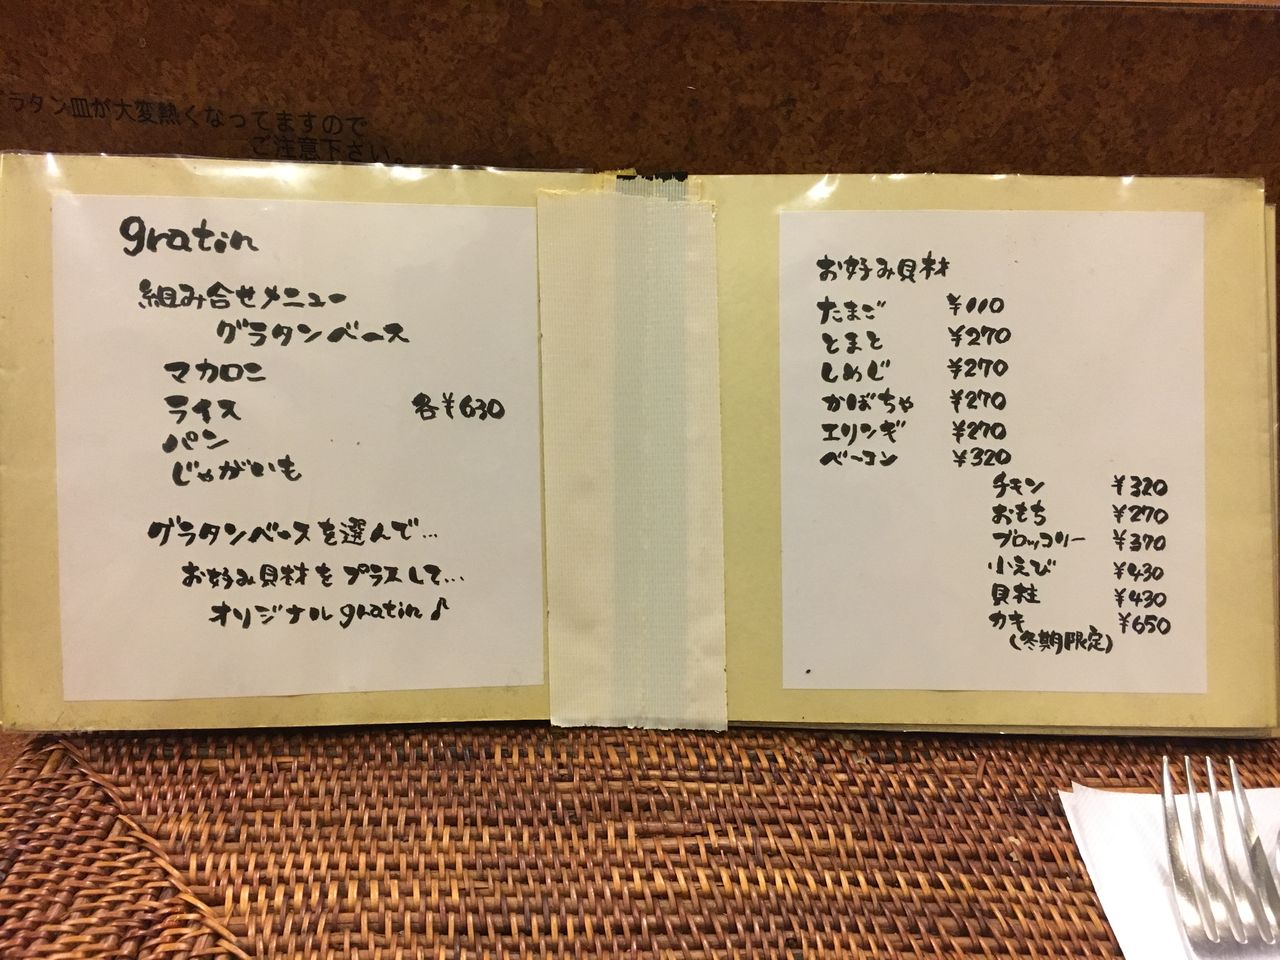 ラタン皿が大変熱くなってますので
ご注意下さい。
gratin
組み合せメニュー
グラタンベース
マカロニ
ライス 各¥630
パン
じゃがいも
グラタンベースを選んで…
お好み具材をプラスして…
オリジナルgratin♪
お好み具材
たまご ¥110
とまと ¥270
しめじ ¥270
かぼちゃ ¥270
エリンギ ¥270
ベーコン ¥320
チキン ¥320
おもち ¥270
ブロッコリー ¥370
小えび ¥430
貝柱 ¥430
カキ ¥650
(冬期限定)